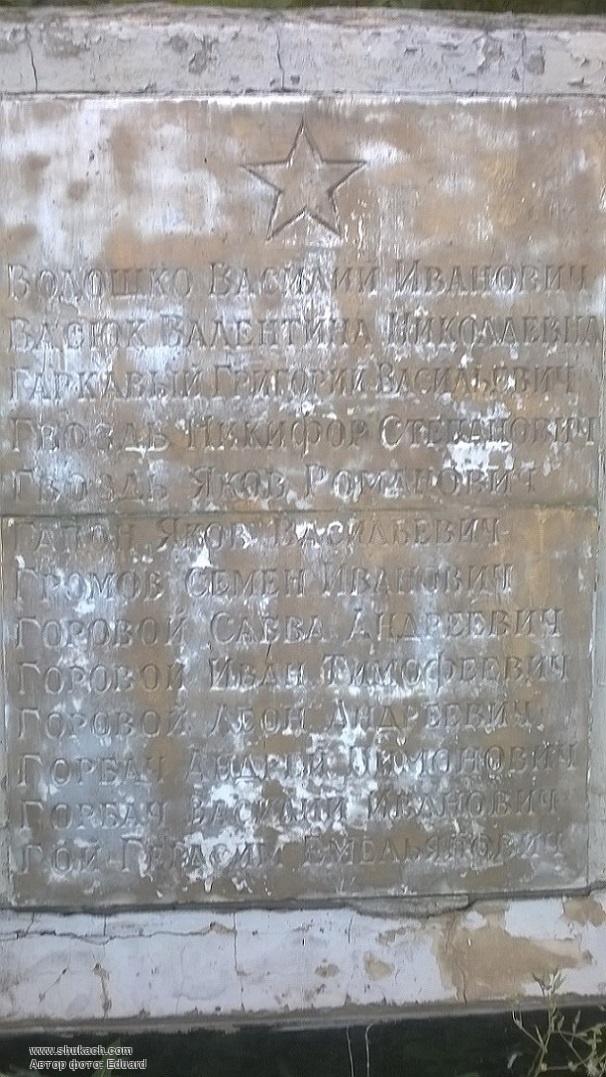 Водошко Василий Иванович
Васюк Валентина Николаевна
Гаркавый Григорий Васильевич
Гвоздь Никифор Степанович
Гвоздь Яков Романович
Гапон Яков Васильевич
Громов Семен Иванович
Горовой Савва Андреевич
Горовой Иван Тимофеевич
Горовой Леон Андреевич
Горбач Андрей
Горбач Василий Иванович
Гой Герасим Емельянович
www.shukach.com
Автор фото: Eduard